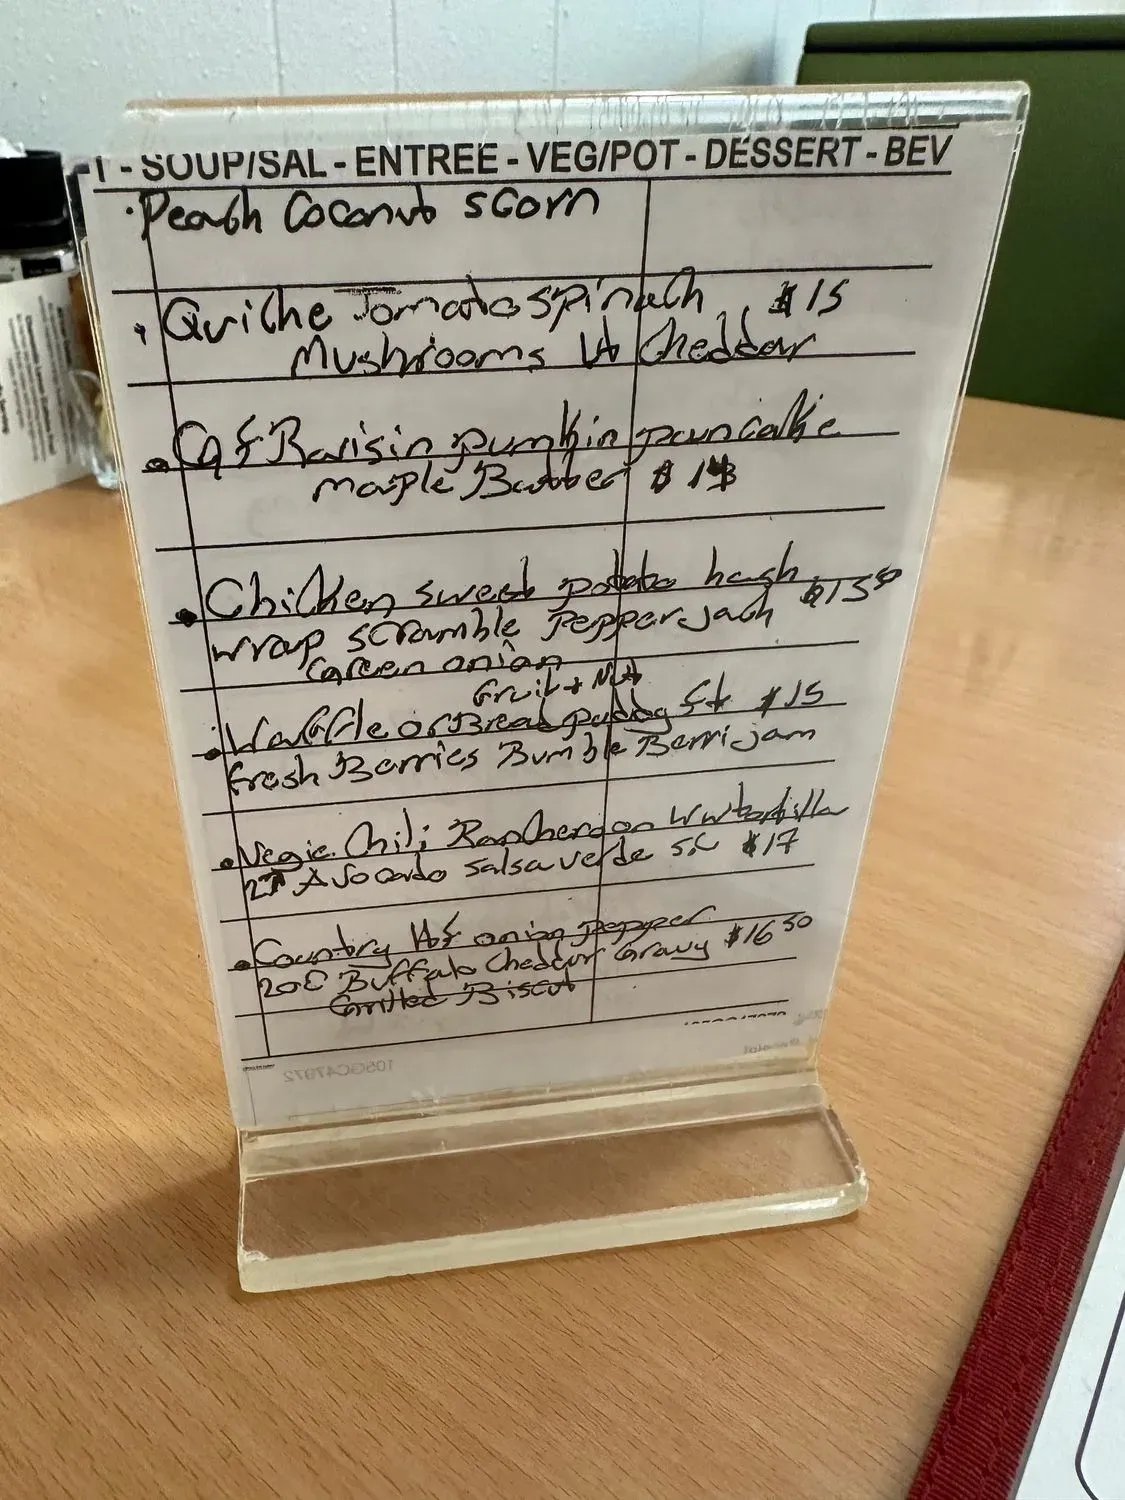 T - SOUP/SAL - ENTREE - VEG/POT - DESSERT - BEV
• Peach Coconut scorn
• Quiche Tomato spinach, $15
Mushrooms W Cheddar
• Raisin pumkin pancake
maple Butter $ 14
• Chicken sweet potato hash $13 50
wrap scramble Pepper Jack
Green onion
Fruit + Nut
• Waffle or Bread puddg $15
fresh Berries Bumble Berri jam
• Vegie. Chili Ranchero on WW tortilla
Avocado salsa verde SC $17
• Country onion pepper
Buffalo Cheddar Gravy $16 50
Grilled Biscut
105GC47972